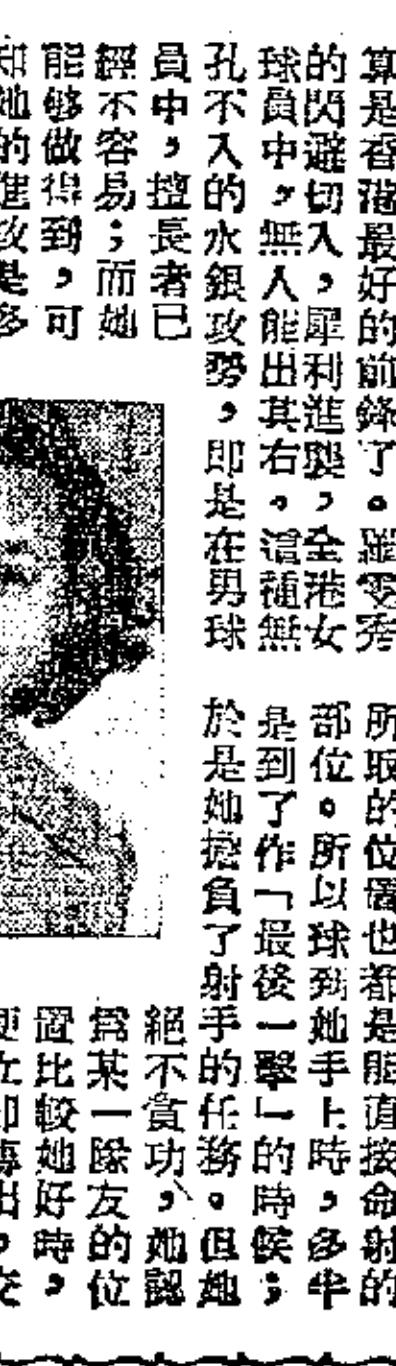 算是香港最好的前鋒了。羅零秀
的閃避切入，犀利進襲，全港女
球員中，無人能出其右。這種無
孔不入的水銀攻勢，即是在男球
員中，擅長者已
經不容易；而她
能够做得到，可
知她的進攻是多
所取的位置也都是能直接命射的
部位。所以球到她手上時，多半
是到了作「最後一擊」的時候；
於是她擔負了射手的任務。但她
絕不貪功，她認
爲某一隊友的位
置比較她好時，
便立即傳出，交